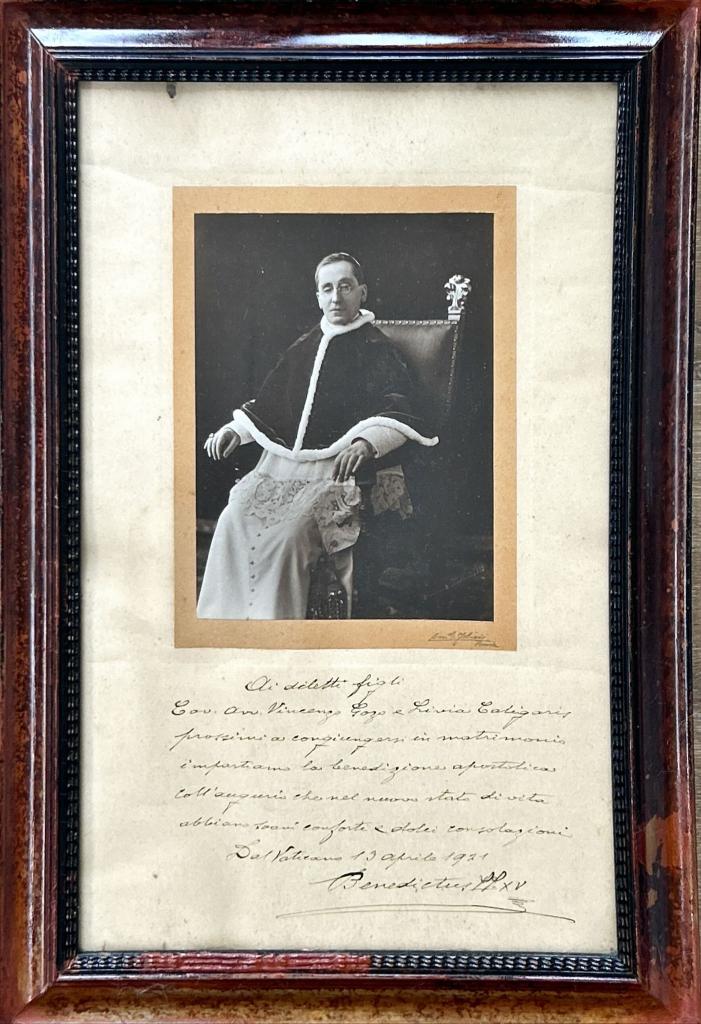 Ai diletti figli
Cav. Avv. Vincenzo Gozo e Livia Caligaris
prossimi a congiungersi in matrimonio
impartiamo la benedizione apostolica
coll'augurio che nel nuovo stato di vita
abbiano soavi conforti e dolci consolazioni
Dal Vaticano 13 aprile 1921
Benedictus PP. XV